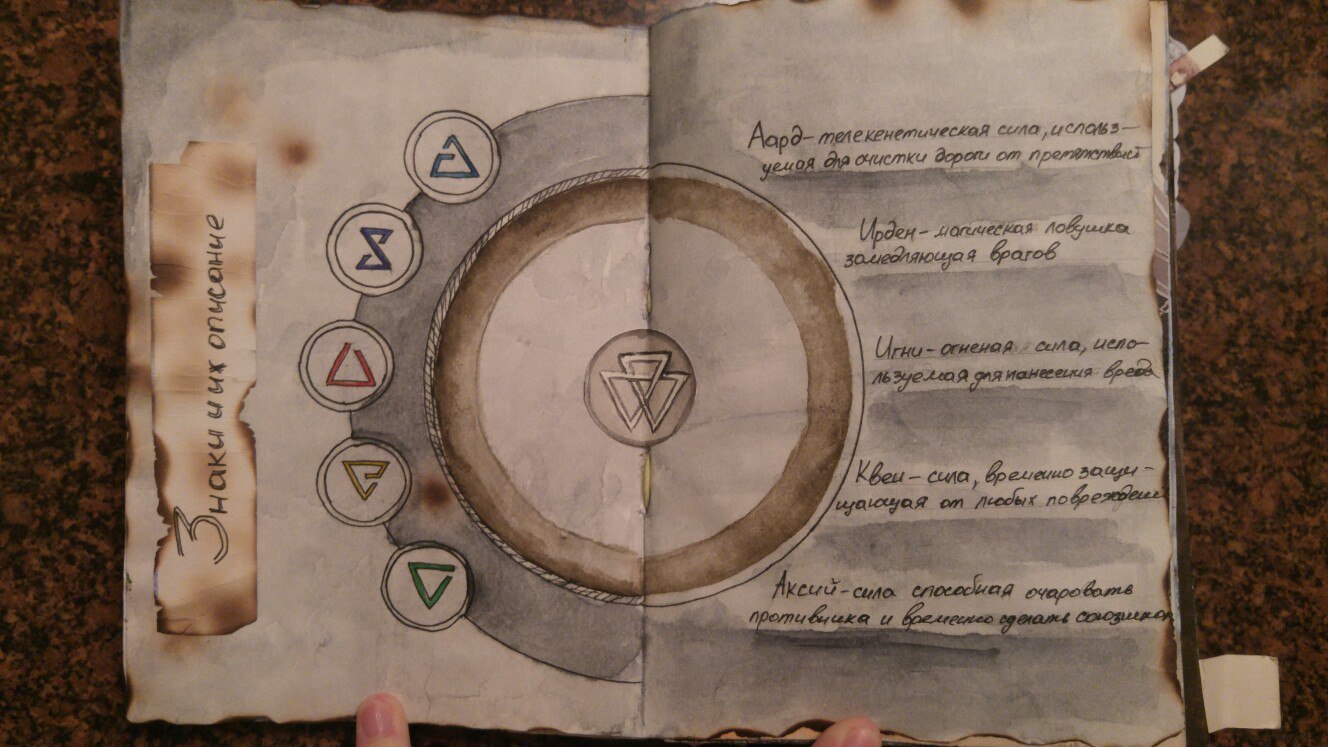 Знаки и их описание
Аард – телекенетическая сила, использ-
уемая для очистки дороги от препятствий
Ирден – магическая ловушка
замедляющая врагов
Игни – огненая сила, испо-
льзуемая для нанесения вреда
Квен – сила, временно защи-
щающая от любых поврежден
Аксий – сила способная очаровать
противника и временно сделать союзником